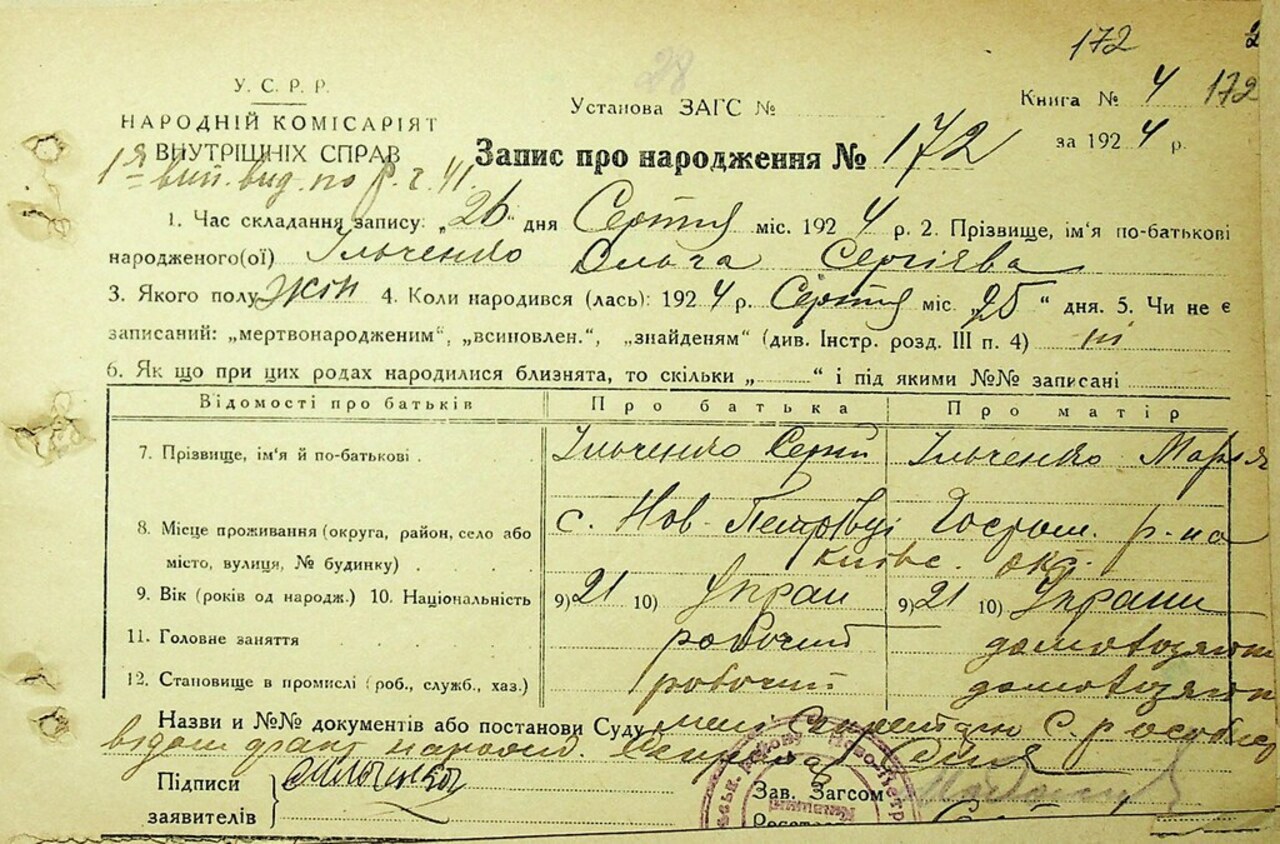 172 2
У. С. Р. Р.
28
Установа ЗАГС №
Книга № 4 172
НАРОДНІЙ КОМІСАРІЯТ
ВНУТРІШНІХ СПРАВ
Запис про народження № 172
за 1924 р.
1. Час складання запису: „26“ дня Серпня міс. 1924 р. 2. Прізвище, ім'я по-батькові
народженого(ої) Ільченко Ольга Сергієва
3. Якого полу жін 4. Коли народився (лась): 1924 р. Серпня міс. „25“ дня. 5. Чи не є
записаний: „мертвонародженим“, „всиновлен.“, „знайденям“ (див. Інстр. розд. III п. 4) ні
6. Як що при цих родах народилися близнята, то скільки „ “ і під якими №№ записані
Відомості про батьків Про батька Про матір
7. Прізвище, ім'я й по-батькові . Ільченко Сергій Ільченко Марія
8. Місце проживання (округа, район, село або с. Нов-Петрівці Гостом. р-на
місто, вулиця, № будинку) . Київс. окс.
9. Вік (років од народж.) 10. Національність 9) 21 10) Украи 9) 21 10) Украини
11. Головне заняття робочий
12. Становище в промислі (роб., служб., хаз.) робочий
Назви и №№ документів або постанови Суду
Підписи
заявителів
Зав. Загсом